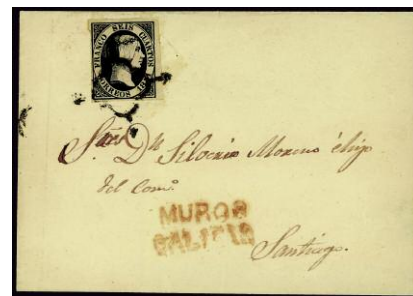 FRANCO SEIS CUARTOS
CORREOS
Sr. Dn Silverio Moreno é hijo
del Como
MUROS
GALICIA
Santiago.